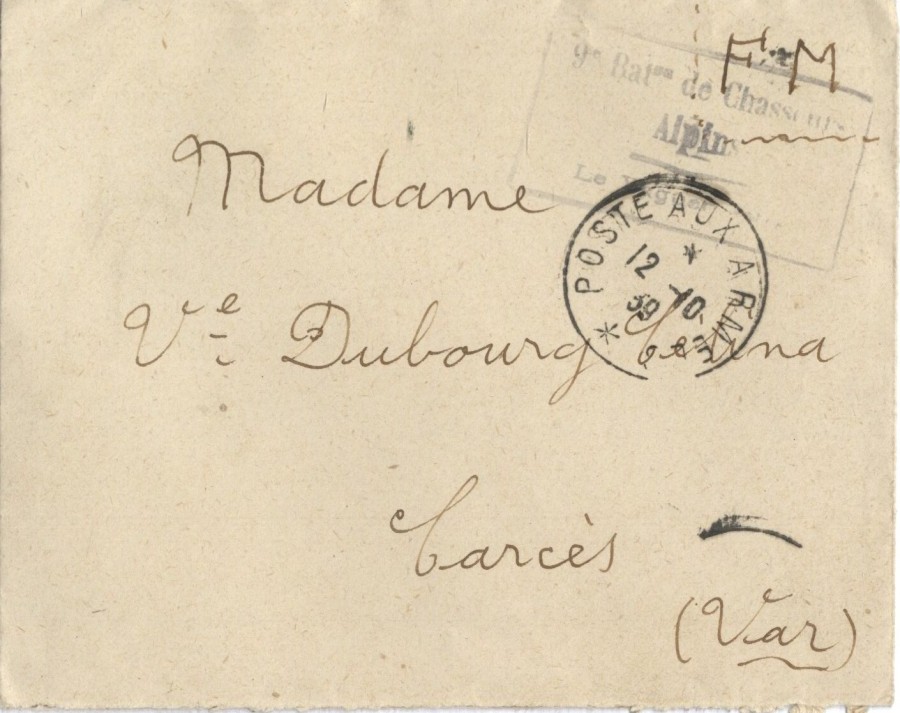 F.M
9e Baton de Chasseurs
Alpins
Le
POSTE AUX ARMÉES
12 10
39
Madame
Ve Dubourg
Carcès
(Var)